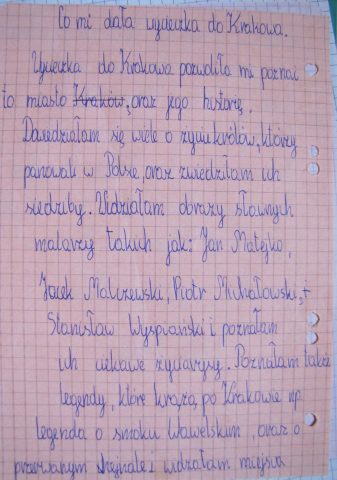 Co mi dała wycieczka do Krakowa.
Wycieczka do Krakowa pozwoliła mi poznać
to miasto Kraków, oraz jego historię.
Dowiedziałam się wiele o życiu królów, którzy
panowali w Polsce, oraz zwiedziłam ich
siedziby. Widziałam obrazy sławnych
malarzy takich jak: Jan Matejko,
Jacek Malczewski, Piotr Michałowski,
Stanisław Wyspiański i poznałam
ich ciekawe życiorysy. Poznałam także
legendy, które krążą po Krakowie np.
legenda o smoku Wawelskim, oraz o
przerwanym hejnale i widziałam miejsca